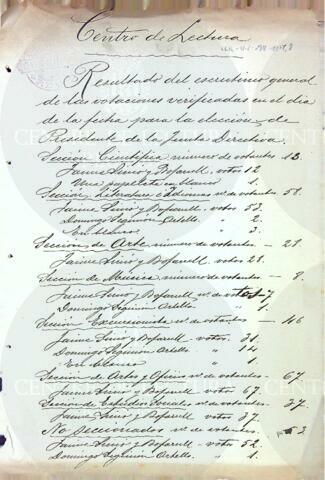 Centro de Lectura
Resultado del escrutinio general
de las votaciones verificadas en el dia
de la fecha para la elección de
Presidente de la Junta Directiva.
Sección Científica número de votantes 13.
Jaime Simó y Bofarull votos 12
Una papeleta en blanco 1
Sección Literatura é Idiomas nº. de votantes 58.
Jaime Simó y Bofarull votos 53.
Domingo Seguimon Ortells " 2.
En blanco " 3.
Sección de Arte número de votantes — 21.
Jaime Simó y Bofarull votos 21.
Sección de Música número de votantes — 8.
Jaime Simó y Bofarull nº. de votos 7
Domingo Seguimon Ortells 1.
Sección Excursionista nº. de votantes — 46
Jaime Simó y Bofarull votos 31.
Domingo Seguimon Ortells. " 14.
En blanco " 1.
Sección de Arte y Oficios nº. de votantes. — 67
Jaime Simó y Bofarull votos 67.
Sección de Estudios Sociales nº. de votantes. 37.
Jaime Simó y Bofarull votos 37.
No seccionados nº. de votantes 53
Jaime Simó y Bofarull votos 52.
Domingo Seguimon Ortells. " 1.